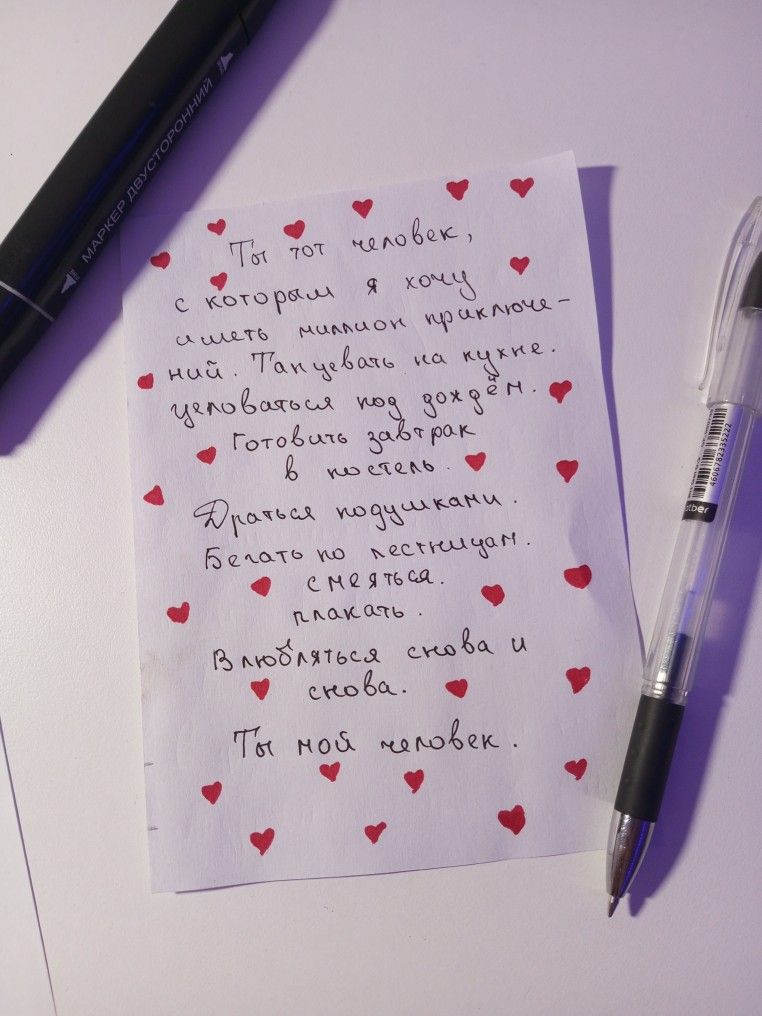 МАРКЕР ДВУСТОРОННИЙ
Ты тот человек,
с которым я хочу
иметь миллион приключе-
ний. Танцевать на кухне.
целоваться под дождём.
Готовить завтрак
в постель.
Драться подушками.
Бегать по лестницам.
смеяться.
плакать.
Влюбляться снова и
снова.
Ты мой человек.
4606782335222